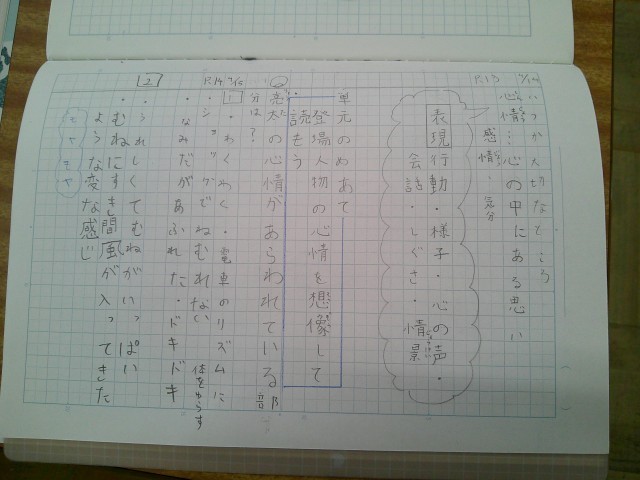 P.13
いつか、大切なところ
心情…心の中にある思い
感情・気分
表現 行動・様子・心の声・
会話・しぐさ・情景
単元のめあて
登場人物の心情を想像して
読もう
亮太の心情があらわれている部
分は?
P.14
1
・わくわく・電車のリズムに
体をゆらす
・ショックでねむれない
・なみだがあふれた・ドキドキ
2
・うれしくてむねがいっぱい
・むねにすき間風が入ってきた
ような変な感じ
モヤモヤ